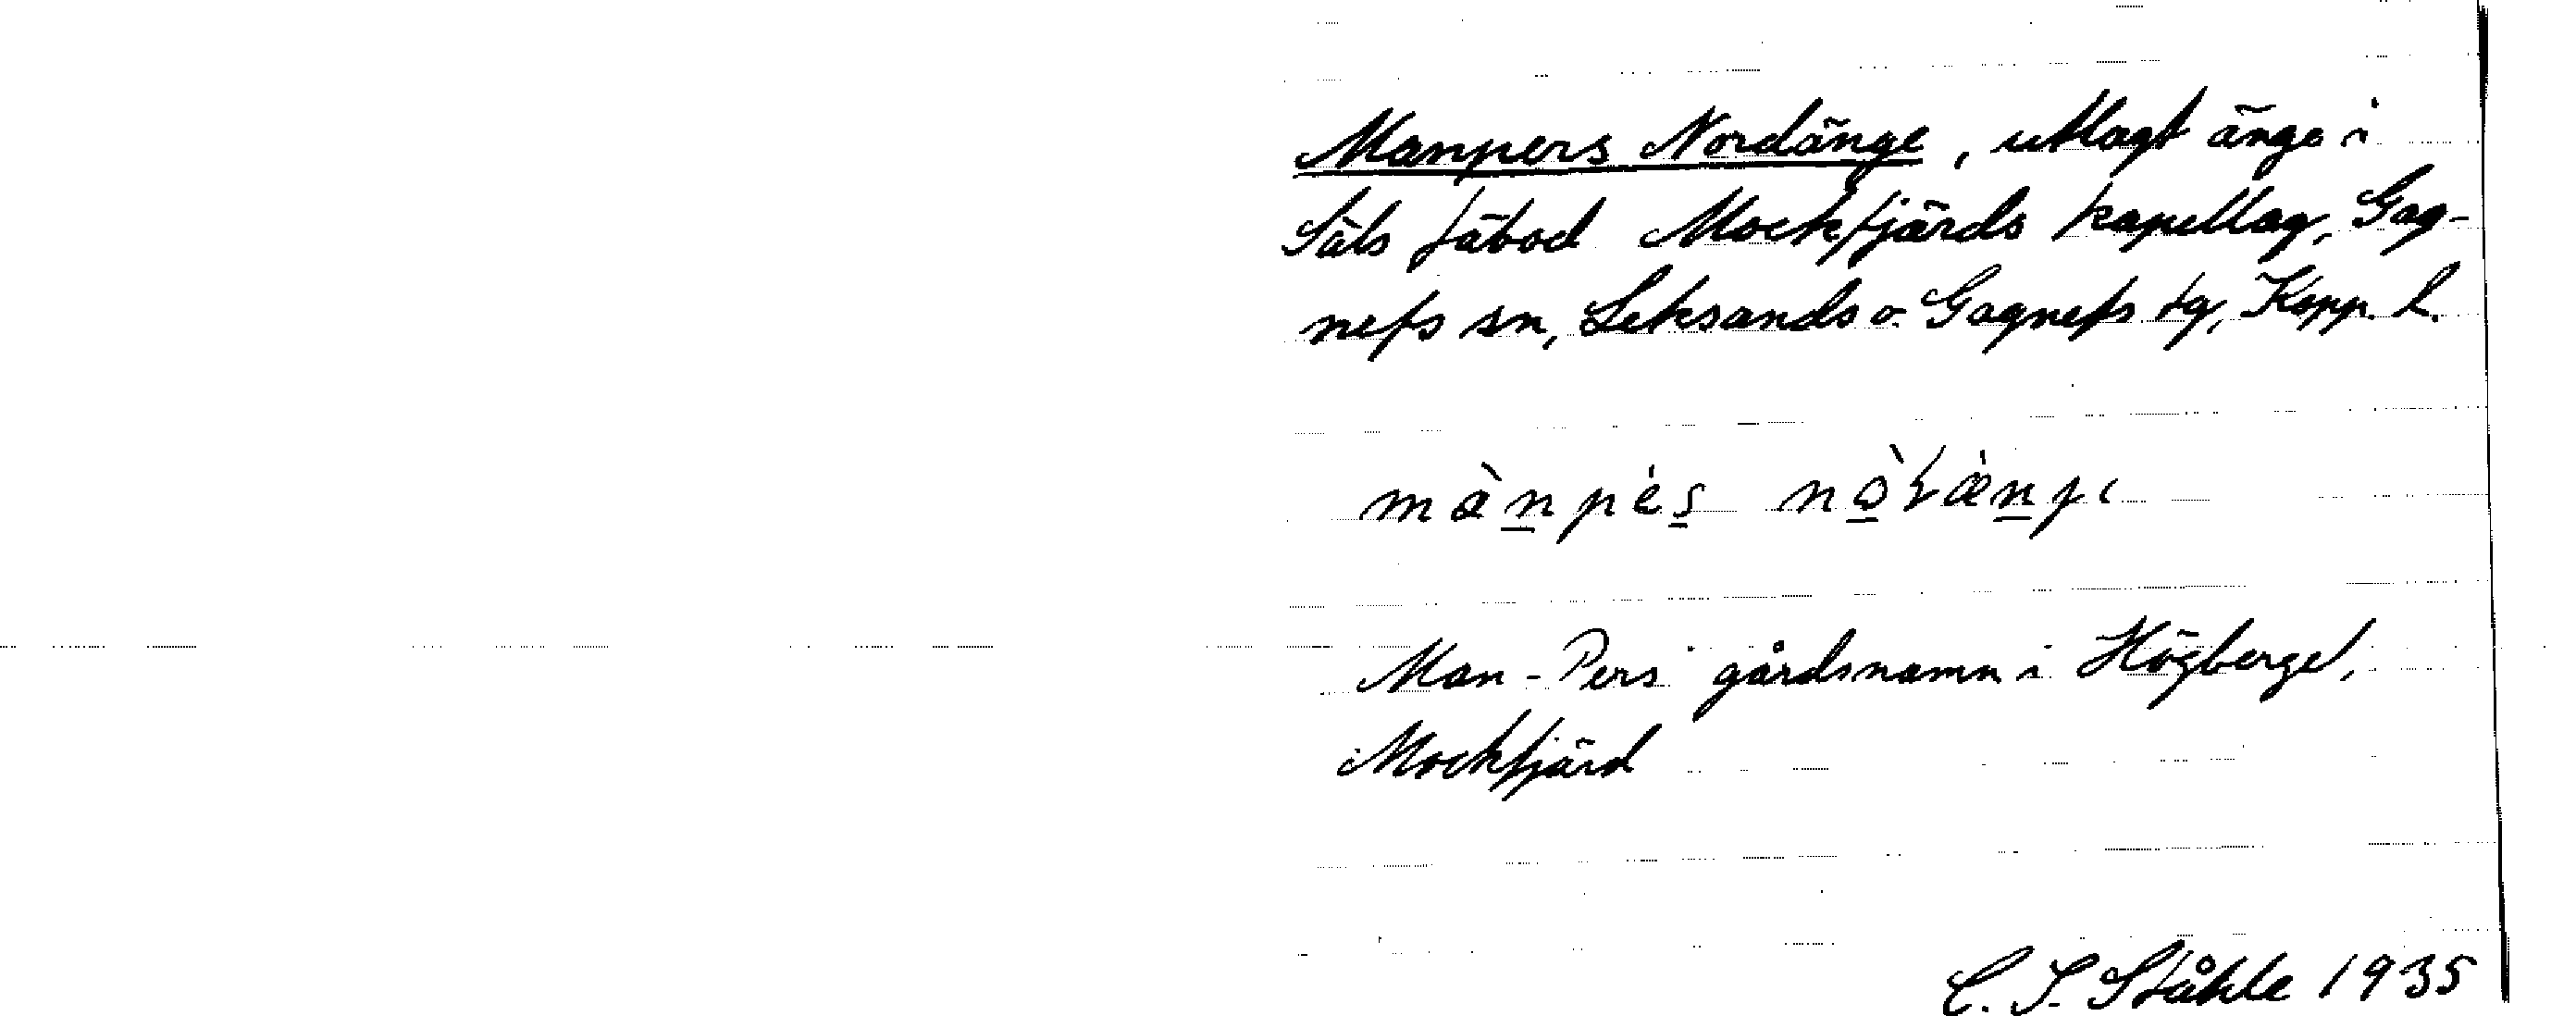 Manpers Nordänge, utlagt änge i
Säls fäbod Mockfjärds kapellag, Gag-
nefs sn, Leksands o. Gagnefs tg, Kopp. l.
Man-Pers gårdsnamn i Högberget,
Mockfjärd
C. I. Ståhle 1935